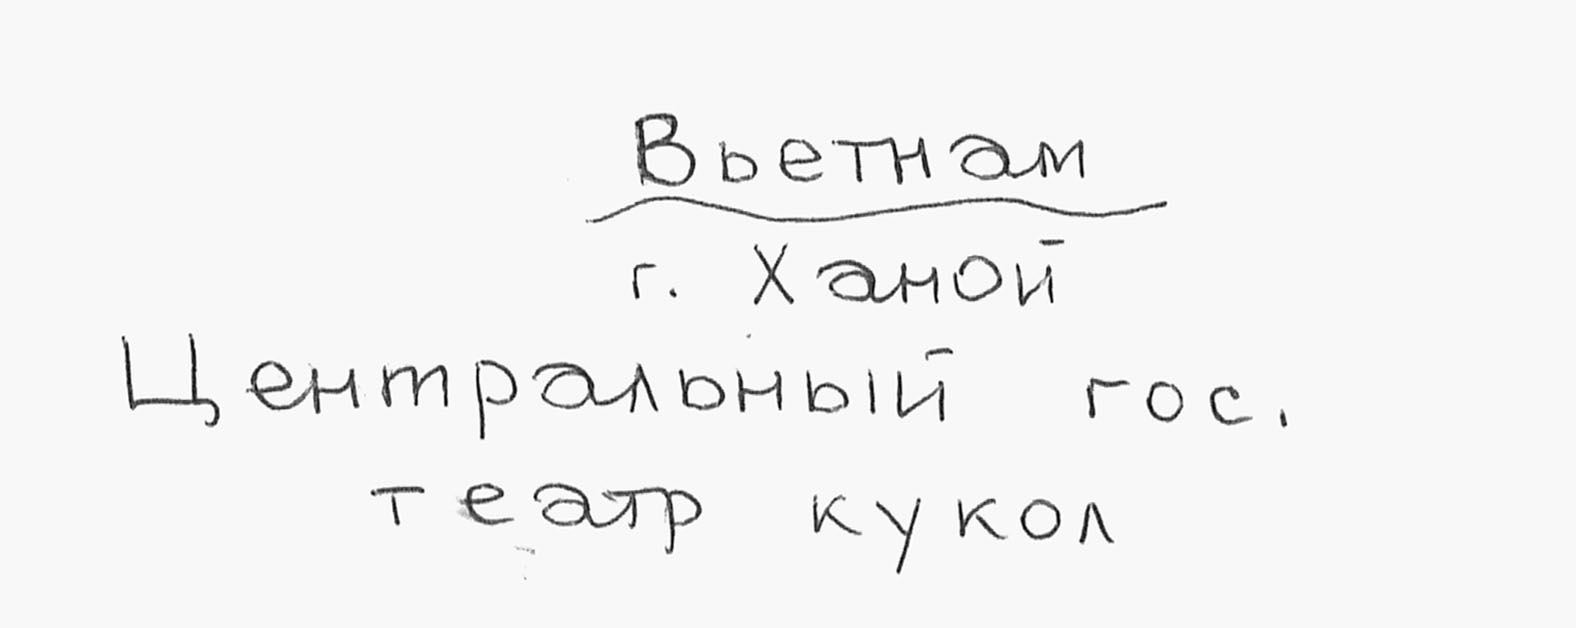 Вьетнам
г. Ханой
Центральный гос.
театр кукол